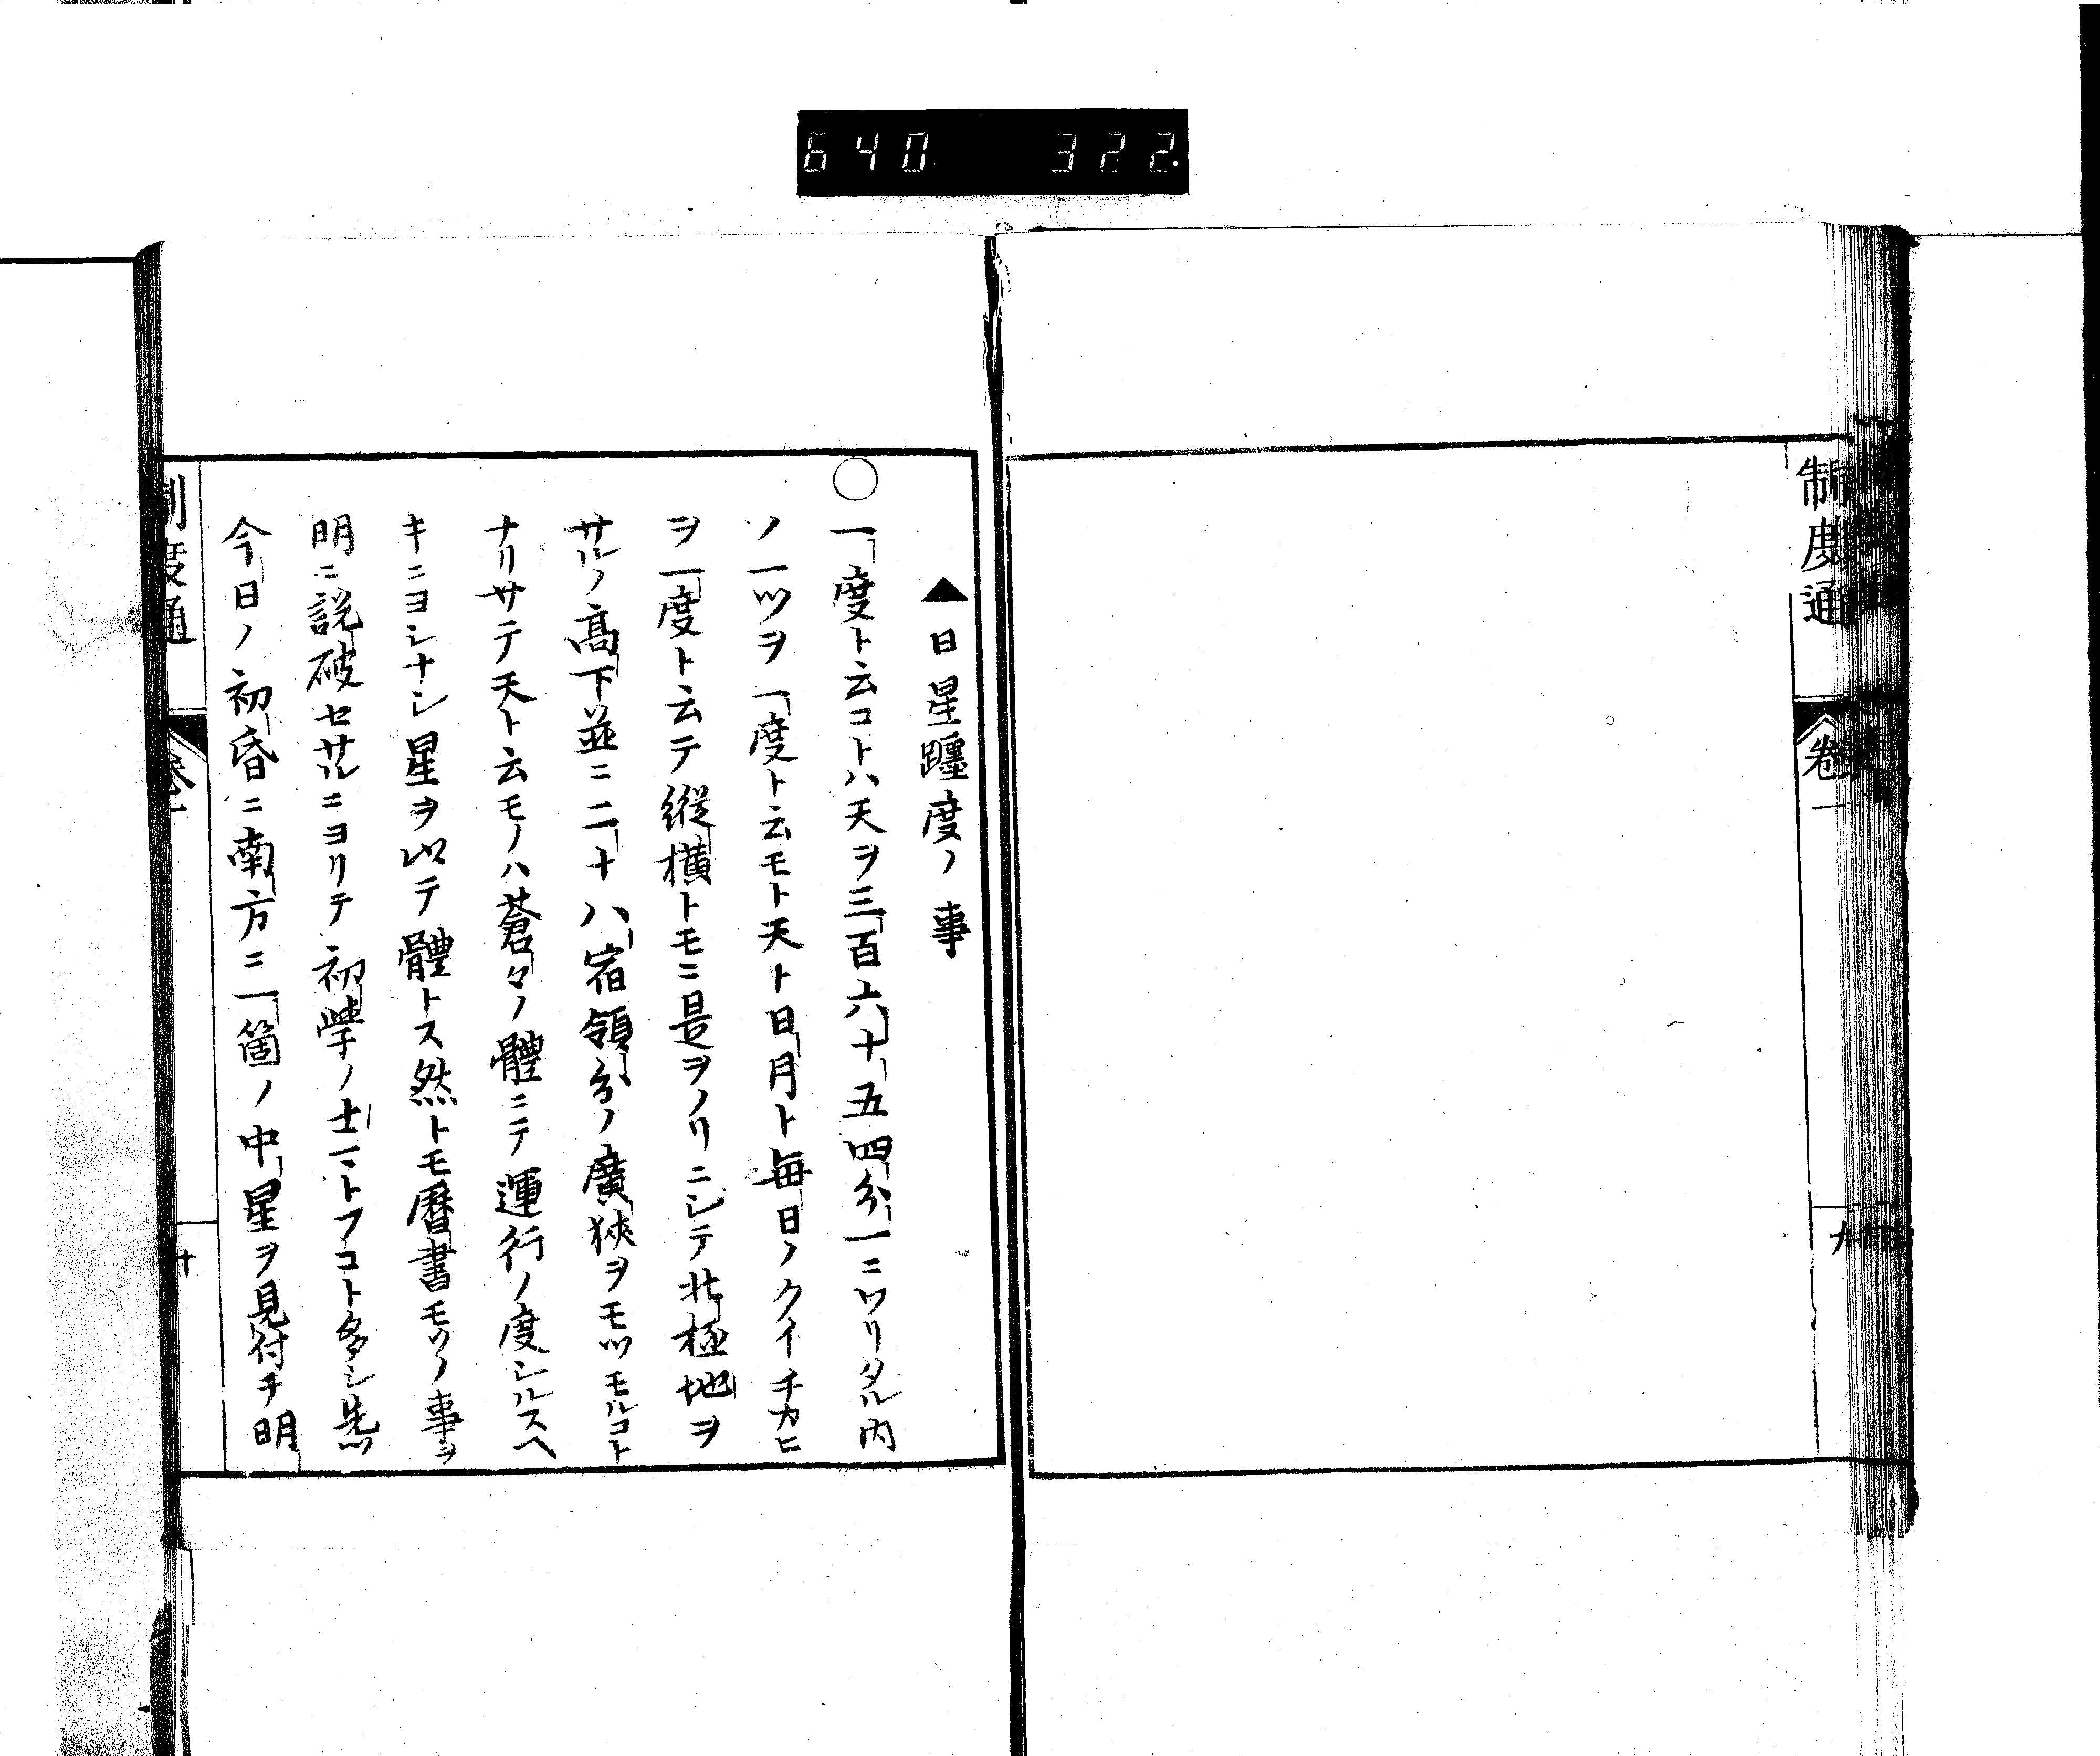 640 322.
制度通
卷一
九
▲日星躔度ノ事
〇一度ト云コトハ天ヲ三百六十五四分一ニワリタル内
ノ一ツヲ一度ト云モト天ト日月ト毎日ノクイチカヒ
ヲ一度ト云テ縱横トモニ是ヲノリニシテ北極地ヲ
サルノ高下並ニ二十八宿領分ノ廣狹ヲモツモルコト
ナリサテ天ト云モノハ蒼々ノ體ニテ運行ノ度シルスヘ
キニヨシナシ星ヲ以テ體トス然トモ曆書モツノ事ヲ
明ニ説破セサルニヨリテ初學ノ士マトフコト多シ先ツ
今日ノ初昏ニ南方ニ一箇ノ中星ヲ見付テ明
制度通
卷一
十